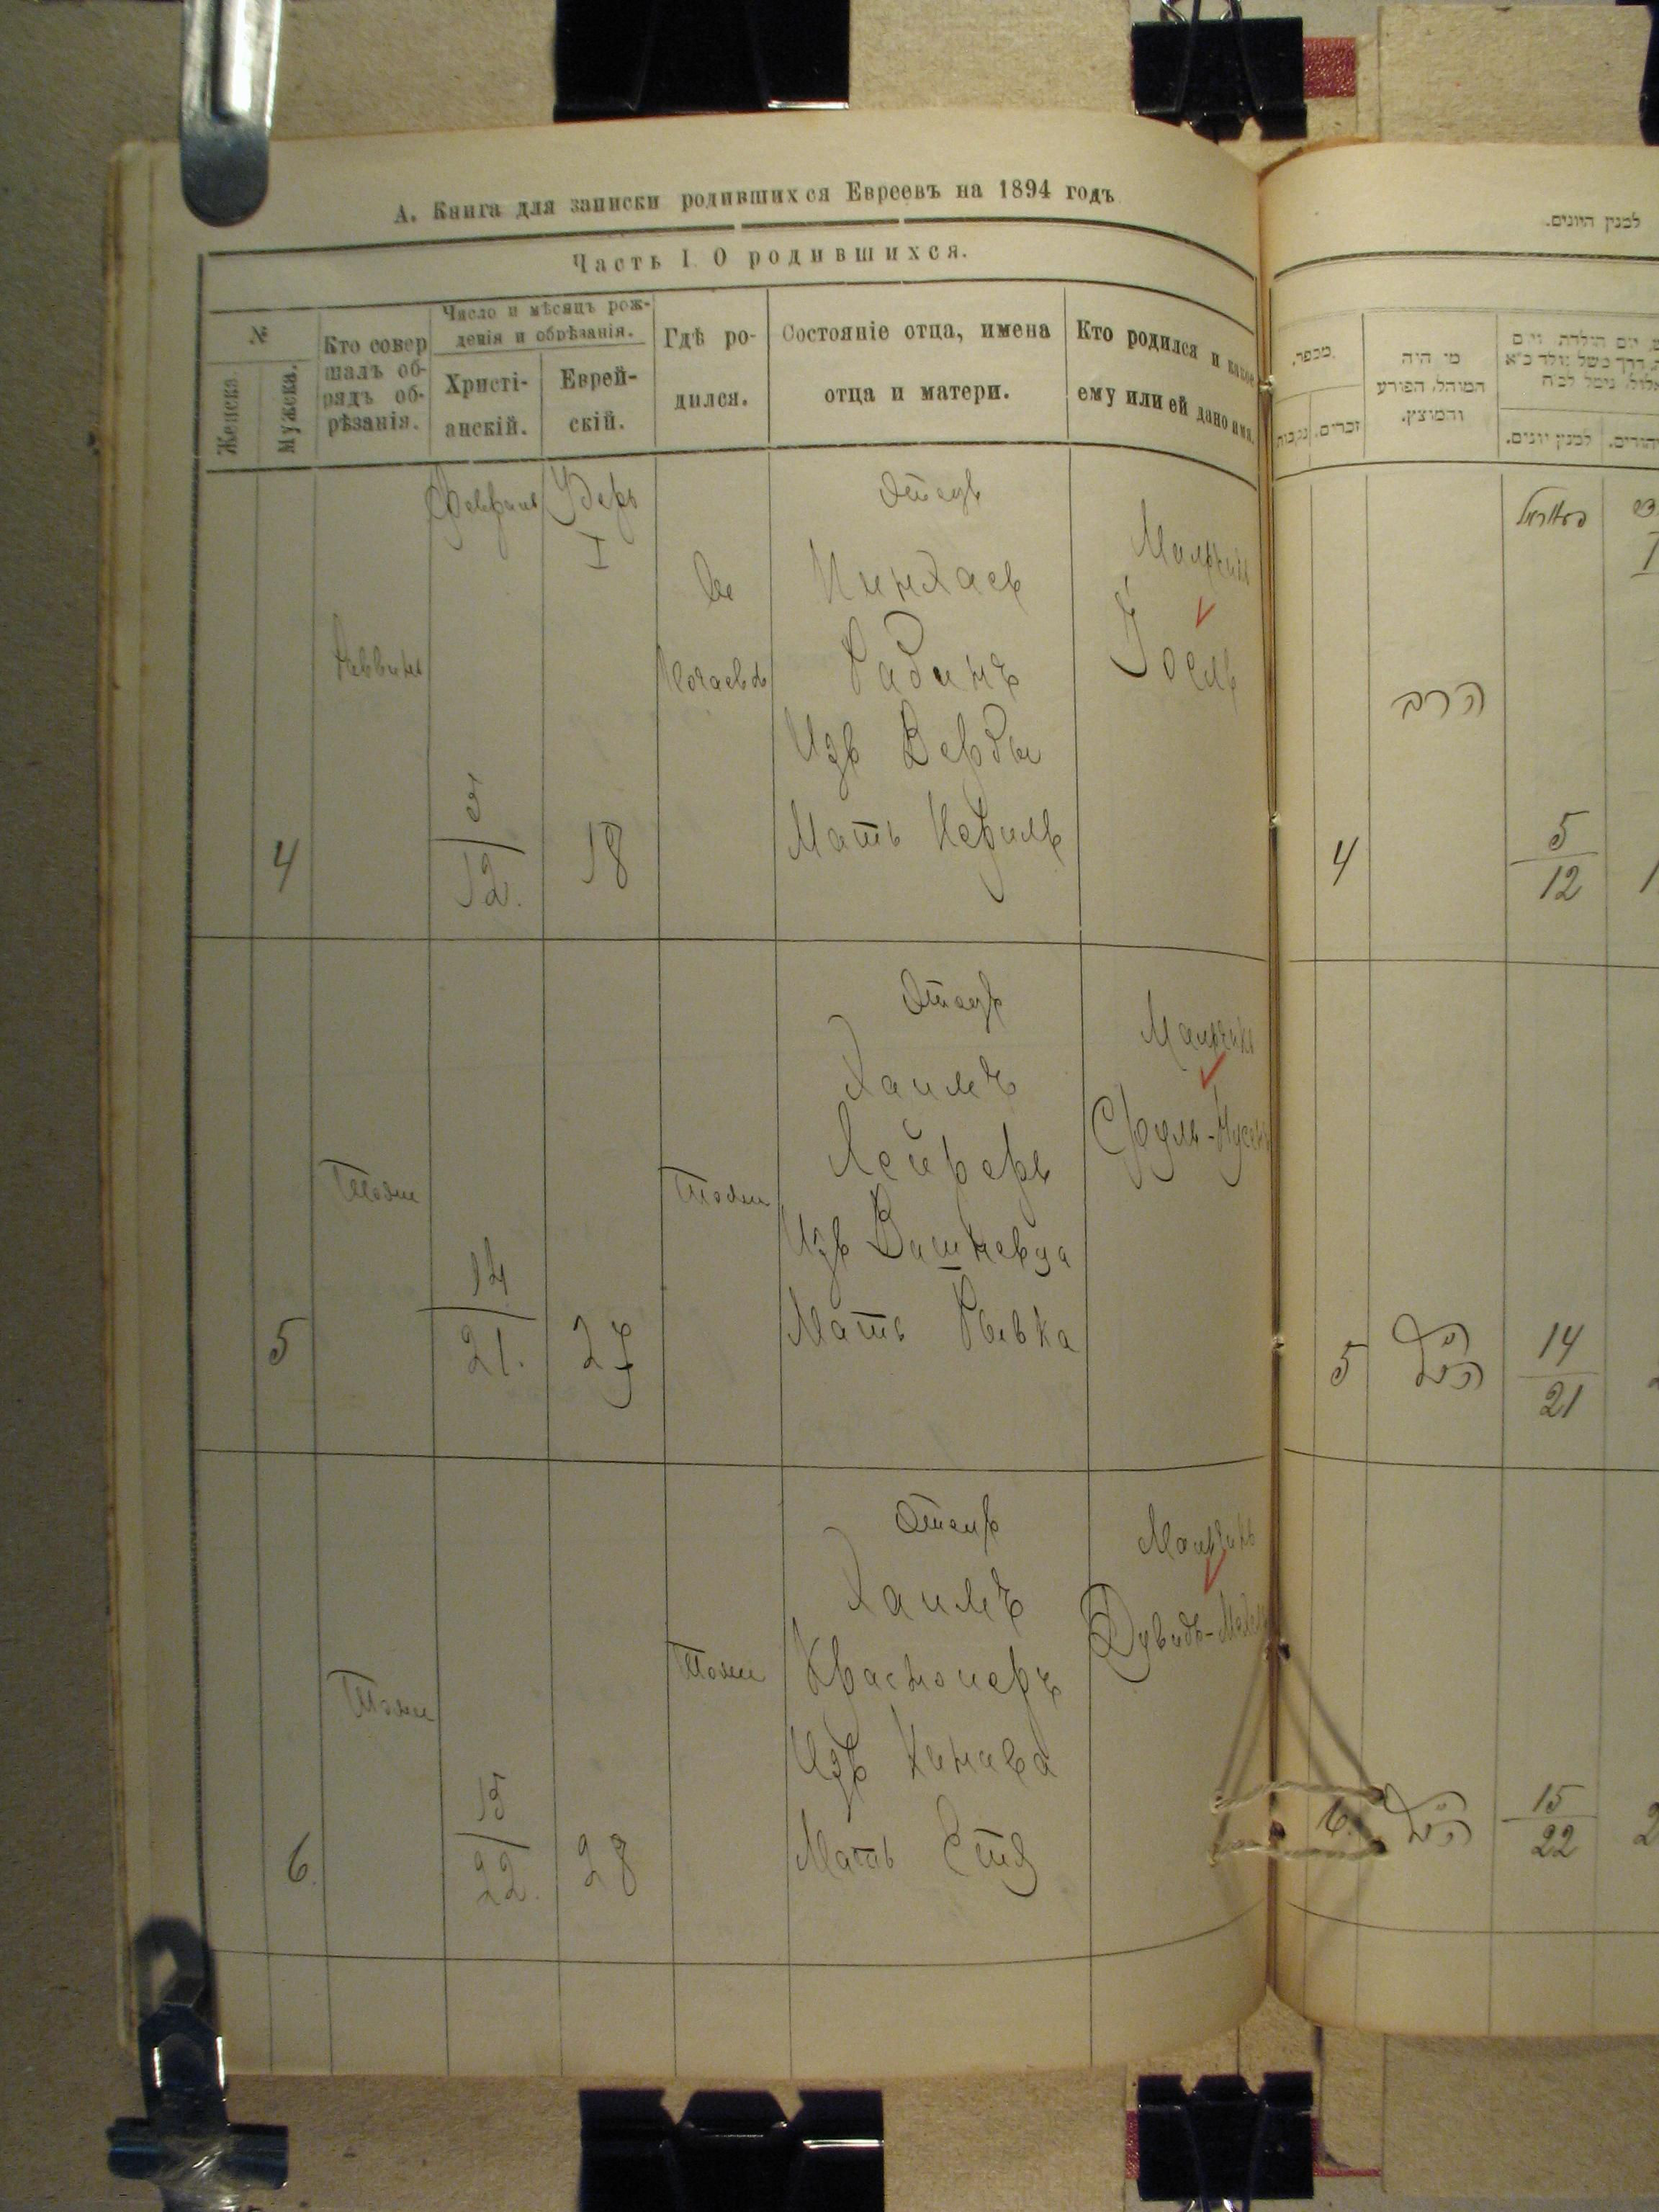 А. Книга для записки родившихся Евреевъ на 1894 годъ
Часть I. О родившихся.
№
Женска.
Мужска.
Кто совер
шалъ об-
рядъ об-
рѣзанія.
Число и мѣсяцъ рож-
денія и обрѣзанія.
Христі-
анскій.
Еврей-
скій.
Гдѣ ро-
дился.
Состояніе отца, имена
отца и матери.
Кто родился и какое
ему или ей дано имя.
4
Раввинъ
Февраль
5
12.
Удеръ
I
18
Въ
Почаевѣ
Отецъ
Пинхасъ
Рабинъ
Изъ Вербы
Мать Периль
Мальчикъ
Іосль
5
Тоже
14
21.
27
Тоже
Отецъ
Хаимъ
Лейфферъ
Изъ Вишневца
Мать Ривка
Мальчикъ
Сруль-Нусенъ
6.
Тоже
15
22.
28
Тоже
Отецъ
Хаимъ
Красноперъ
Изъ
Мать Етя
Мальчикъ
Дувидъ-
למנין היונים.
מספר.
זכרים.
נקבות
מי היה
המוהל, הפורע
והמוצץ.
יום הולדת
למנין יונים.
4
הרב
5
12
5
הנ״ל
14
21
6.
הנ״ל
15
22